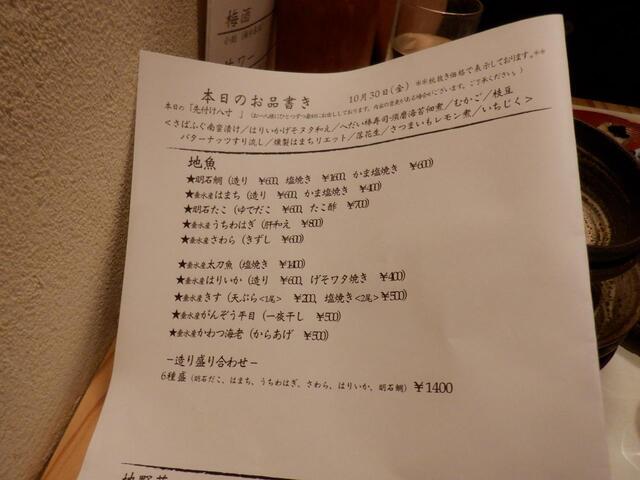 梅酒
本日のお品書き
10月30日(金) ※※税抜き価格で表示しております。※※
本日の「先付け八寸 」(お一人様にひとつずつ最初にお出ししております。内容の変更がある場合がございます。ご了承ください。)
<さばふぐ南蛮漬け/はりいかげそヌタ和え/へだい棒寿司・須磨海苔佃煮/むかご/枝豆
バターナッツすり流し/燻製はまちリエット/落花生/さつまいもレモン煮/いちじく>
地魚
★明石鯛(造り ¥600、塩焼き ¥1600、かま塩焼き ¥600)
★垂水産はまち(造り ¥600、かま塩焼き ¥400)
★明石たこ(ゆでだこ ¥600、たこ酢 ¥700)
★垂水産うちわはぎ(肝和え ¥800)
★垂水産さわら(きずし ¥600)
★垂水産太刀魚(塩焼き ¥1400)
★垂水産はりいか(造り ¥600、げそワタ焼き ¥400)
★垂水産きす(天ぷら<1尾> ¥200、塩焼き<2尾>¥500)
★垂水産がんぞう平目(一夜干し ¥500)
★垂水産かわつ海老(からあげ ¥500)
−造り盛り合わせ−
6種盛(明石だこ、はまち、うちわはぎ、さわら、はりいか、明石鯛)¥1400